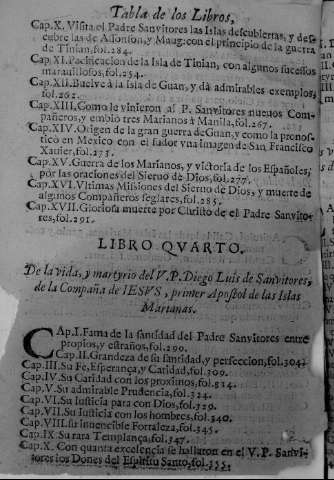 Tabla de los Libros,
Cap.X. Visita el Padre Sanvitores las Islas descubiertas, y des-
cubre las de Assonson, y Maug: con el principio de la guerra
de Tinian, fol.284.
Cap.XI. Pacificacion de la Isla de Tinian, con algunos sucessos
maravillosos, fol.254.
Cap.XII. Buelve à la Isla de Guan, y dà admirables exemplos,
fol.262.
Cap.XIII. Como le vinieron al P. Sanvitores nuevos Com-
pañeros, y embiò tres Marianos à Manila, fol.267.
Cap.XIV. Origen de la gran guerra de Guan, y como la pronos-
ticò en Mexico con el sudor vna imagen de San Francisco
Xavier, fol.275.
Cap.XV. Guerra de los Marianos, y victoria de los Españoles,
por las oraciones del Siervo de Dios, fol.277.
Cap.XVI. Vltimas Missiones del Siervo de Dios, y muerte de
algunos Compañeros seglares, fol.285.
Cap.XVII. Gloriosa muerte por Christo de el Padre Sanvito-
res, fol.291.
LIBRO QVARTO.
De la vida, y martyrio del V.P. Diego Luis de Sanvitores,
de la Compañia de IESVS, primer Apostol de las Islas
Marianas.
CAp.I. Fama de la santidad del Padre Sanvitores entre
propios, y estraños, fol.299.
Cap.II. Grandeza de su santidad, y perfeccion, fol.304.
Cap.III. Su Fè, Esperança, y Caridad, fol.309.
Cap.IV. Su Caridad con los proximos, fol.314.
Cap.V. Su admirable Prudencia, fol.324.
Cap.VI. Su Iusticia para con Dios, fol.329.
Cap.VII. Su Iusticia con los hombres, fol.340.
Cap.VIII. Su invencible Fortaleza, fol.345.
Cap.IX. Su rara Templança, fol.347.
Cap.X. Con quanta excelencia se hallaron en el V.P. Sanvi-
tores los Dones del Espiritu Santo, fol.355.